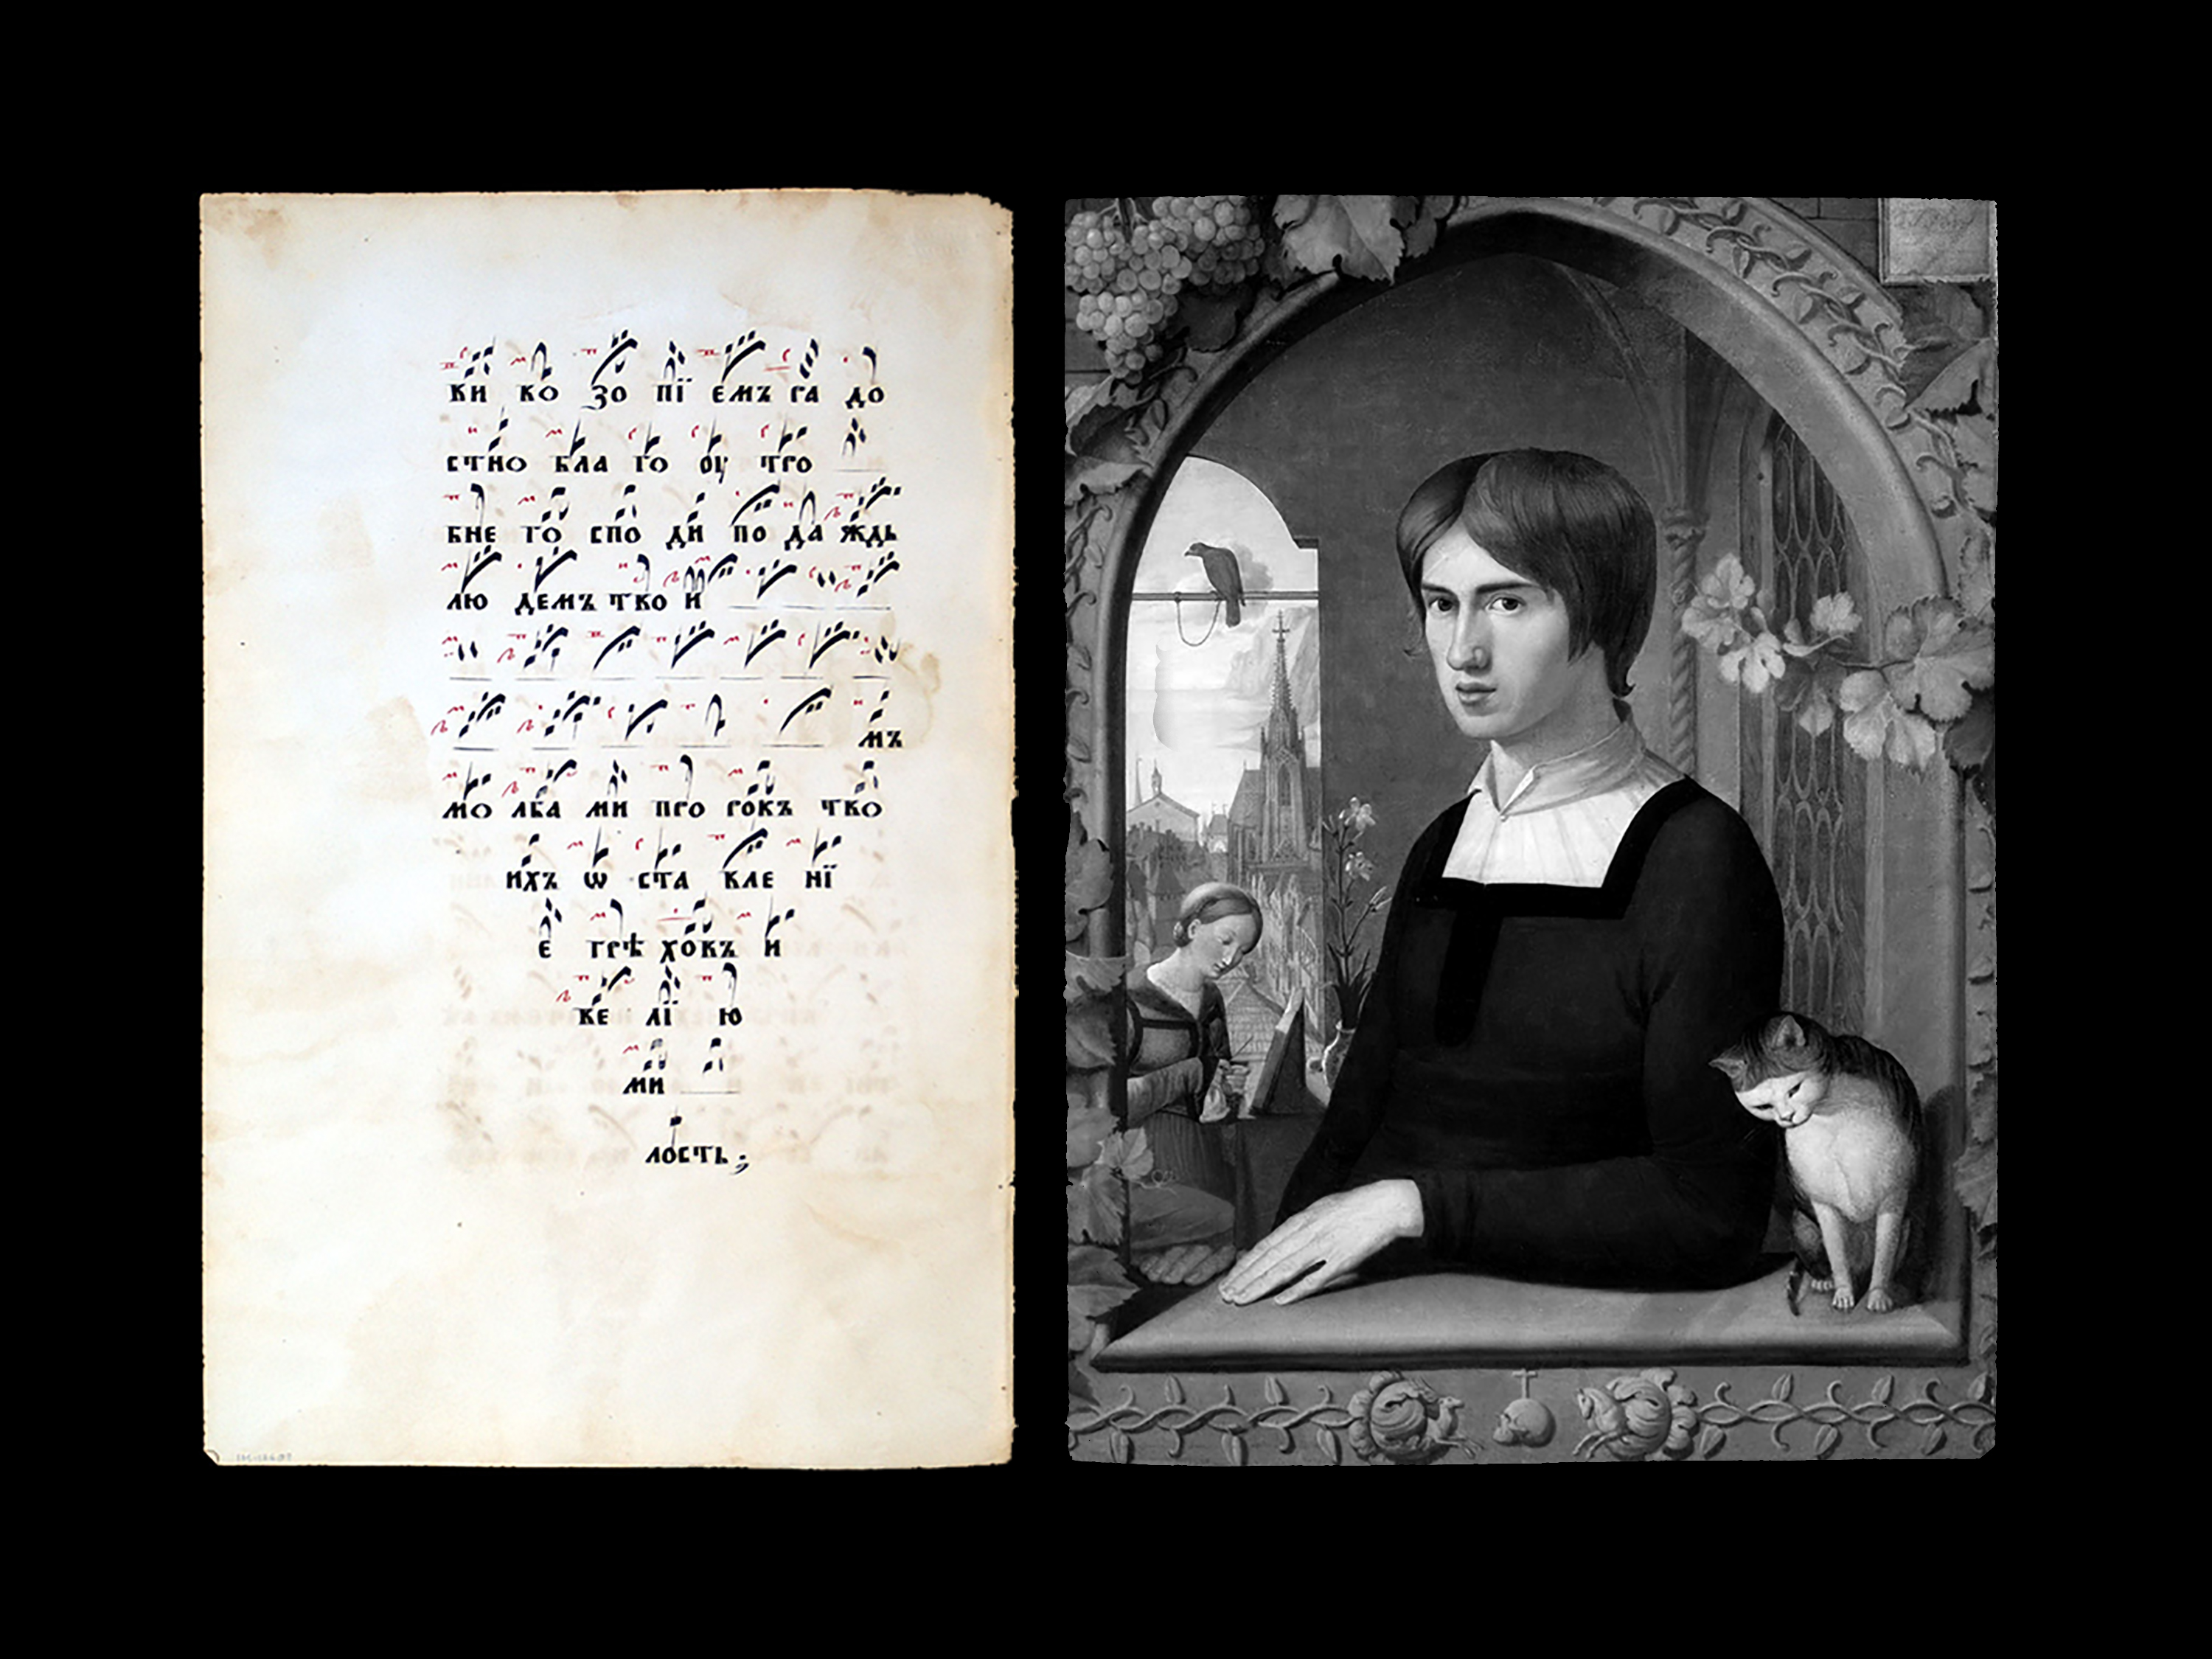 ви во зо пї емъ ра до
стно бла го оу тро
бне го спо ди по да ждь
лю демъ тво и
мъ
мо лба ми про рокъ тво
ихъ ѡ ста вле нї
е грѣ ховъ и
ве лї ю
ми
лость ;